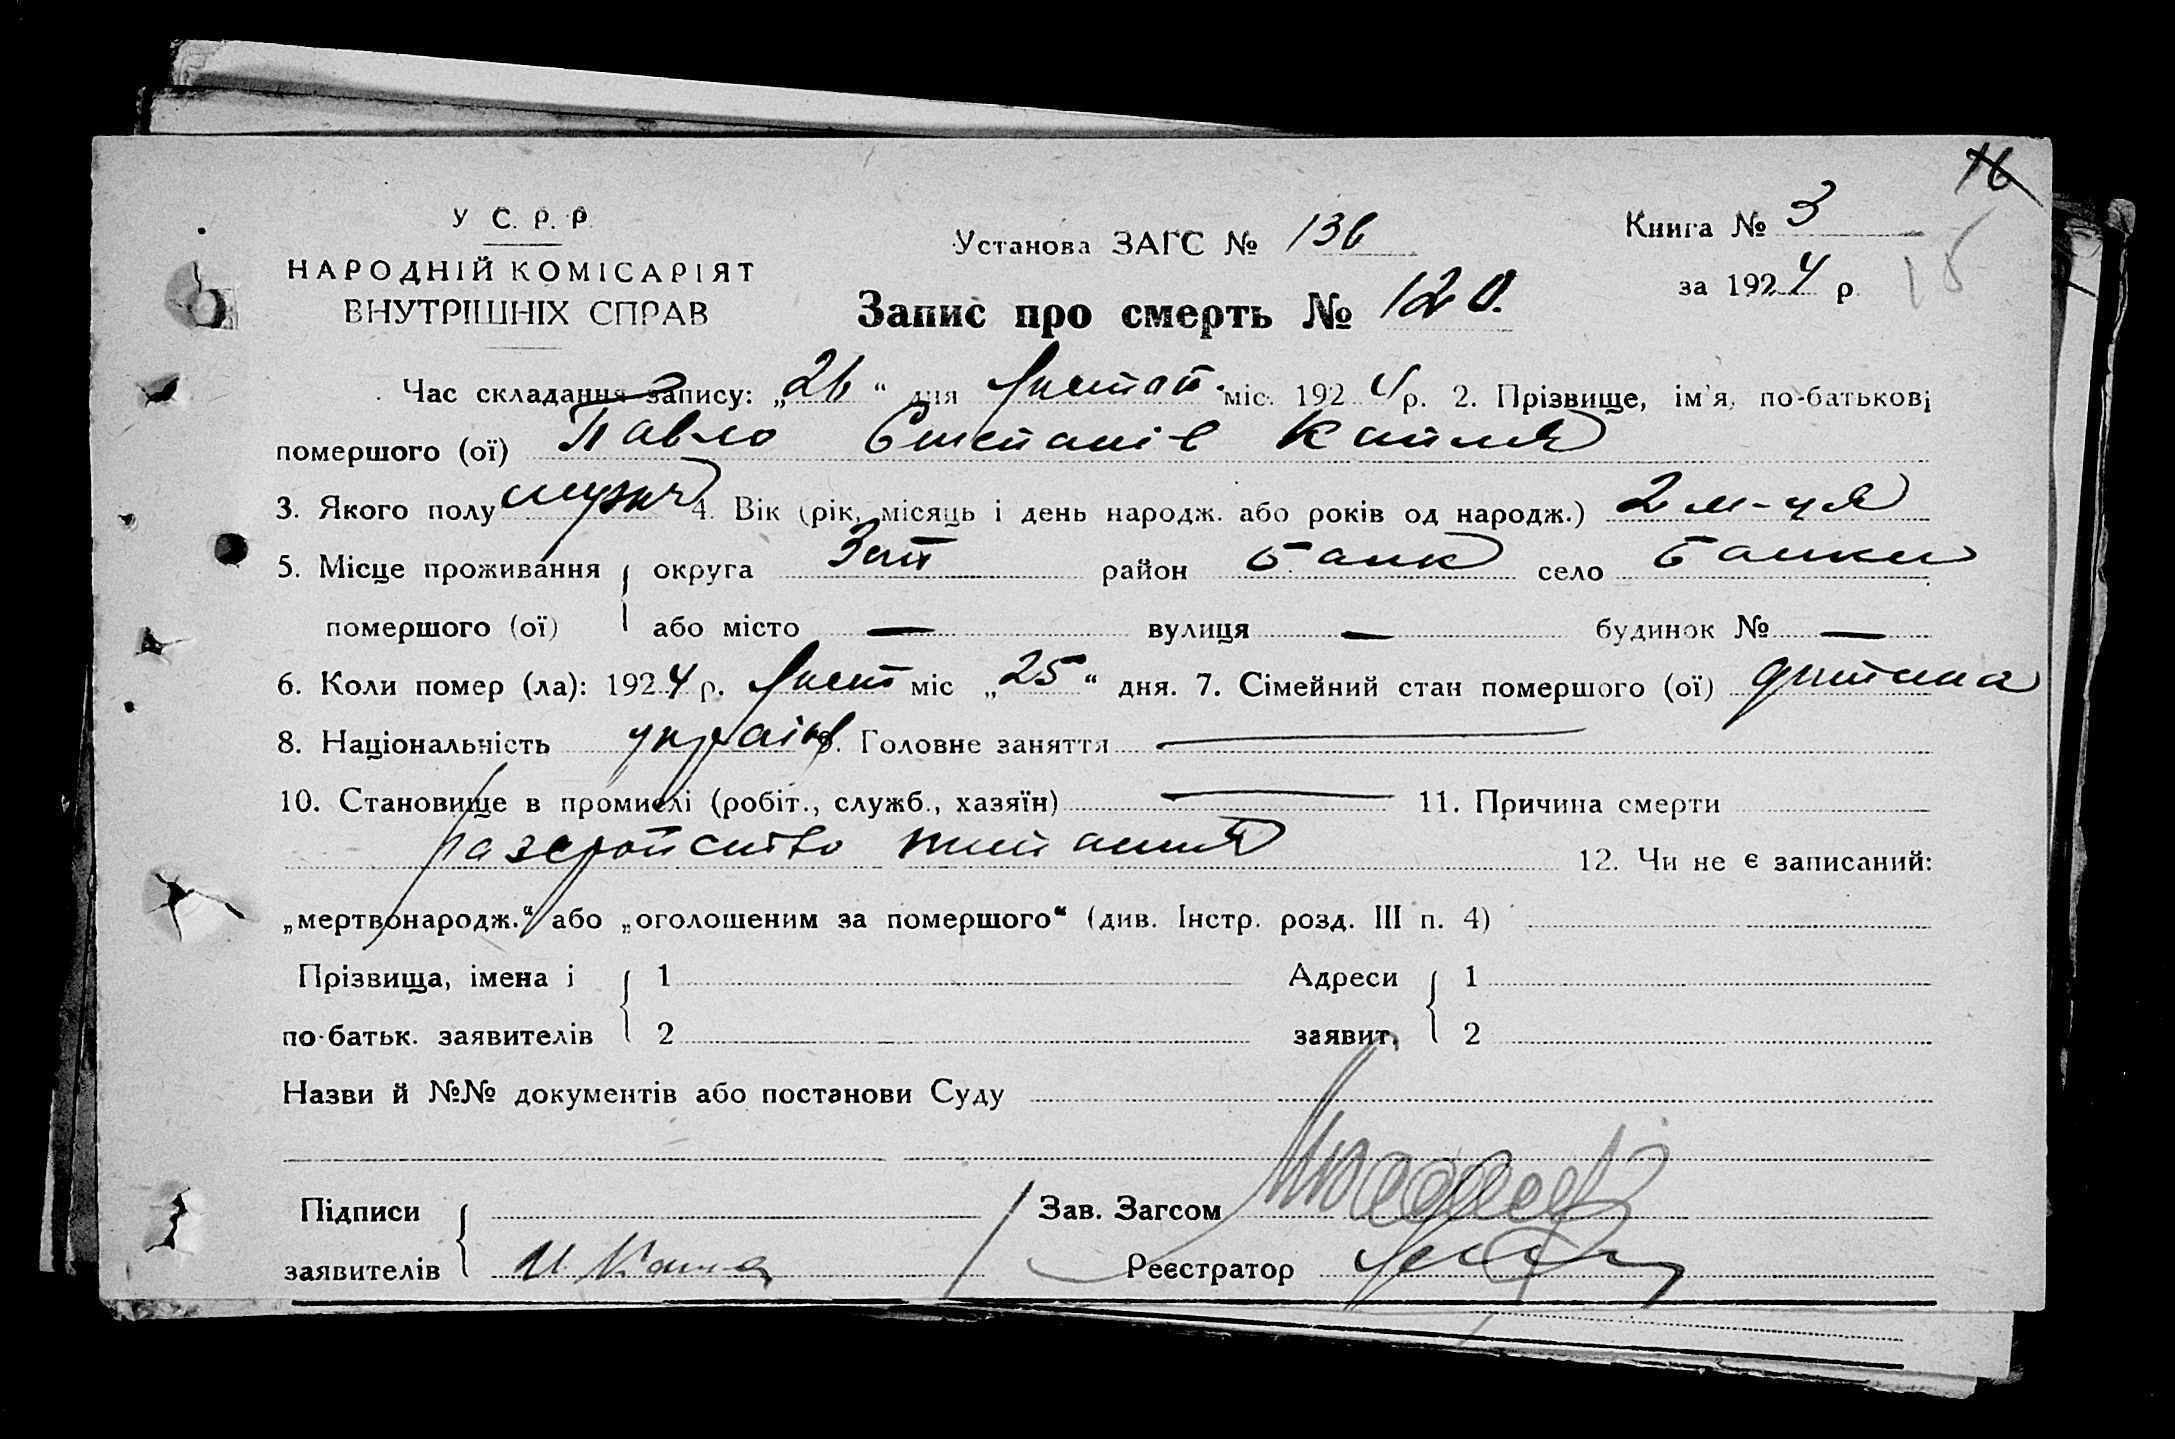 16
У С. Р. Р.
НАРОДНІЙ КОМІСАРІЯТ
ВНУТРІШНІХ СПРАВ
Установа ЗАГС № 136
Книга № 3
за 1924 р
15
Запис про смерть № 120.
Час складання запису: „26“ дня листоп. міс. 1924 р. 2. Прізвище, ім'я, по-батькові
помершого (ої) Павло Степанів
3. Якого полу муж 4. Вік (рік, місяць і день народж. або років од народж.) 2 м-ця
5. Місце проживання округа Зап район Банк село Банки
помершого (ої) або місто — вулиця — будинок № —
6. Коли помер (ла): 1924 р. Лист міс „25“ дня. 7. Сімейний стан помершого (ої) дитина
8. Національність україн 9. Головне заняття —
10. Становище в промислі (робіт., служб., хазяїн) — 11. Причина смерти
12. Чи не є записаний:
„мертвонародж.“ або „оголошеним за помершого“ (див. Інстр. розд. III п. 4)
Прізвища, імена і 1 Адреси 1
по-батьк. заявителів 2 заявит. 2
Назви й №№ документів або постанови Суду
Підписи Зав. Загсом
заявителів Реєстратор